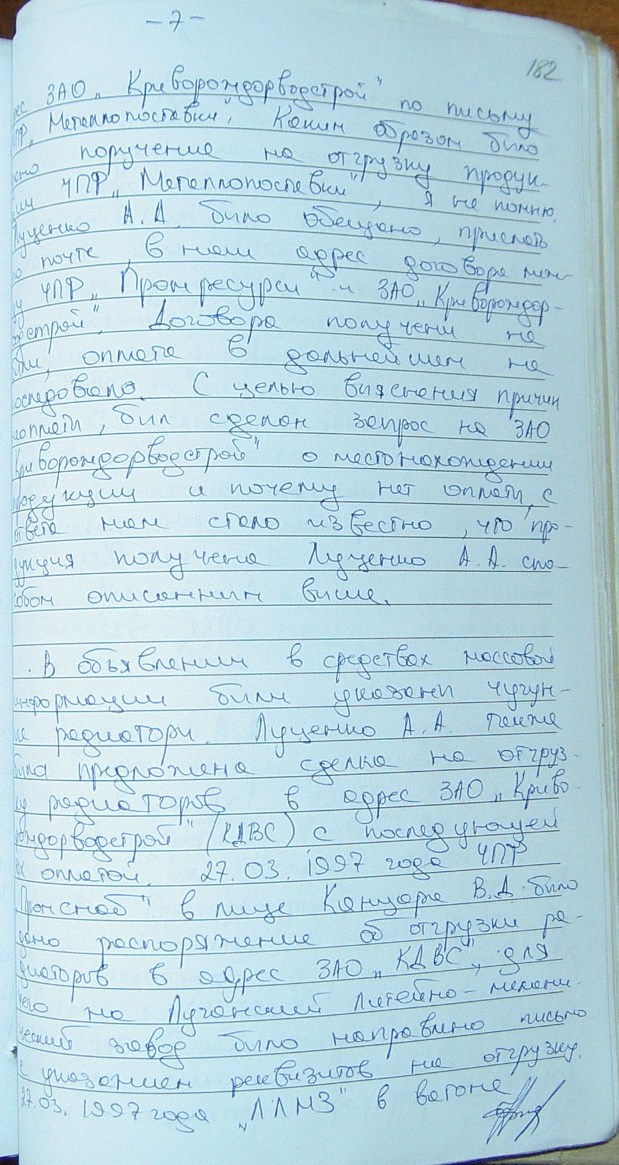 - 7 -
182
ес ЗАО „Криворождорводстрой" по письму
ПР„ Металлопоставки". Каким образом было
ено поручение на отгрузку продук-
ии ЧПР „Металлопоставки", я не помню.
Луценко А.А. било обещано, прислать
о почте, в наш адрес договора меж-
ду ЧПР „Промресурси" и ЗАО „Криворождор-
одстрой". Договора получени не
били, оплата в дальнейшем не
оследовала. С целью вияснения причин
еоплати, бил сделан запрос на ЗАО
Криворождорводстрой" о местонахождении
родукции и почему нет оплати, с
ответа нам стало известно, что про-
дукция получена Луценко А.А. спо-
собом описанним више.
. В объявлении в средствах массовой
информации били указани чугун-
ие радиатори. Луценко А.А. также
била предложена сделка на отгруз-
ку радиаторов в адрес ЗАО „Криво-
рождорводстрой" (КДВС) с последующей
ей оплатой. 27.03.1997 года ЧПР
Промснаб" в лице Канцара В.Д. било
дано распоряжение об отгрузки ра-
диаторов в адрес ЗАО „КДВС", для
чего на Луганский Литейно-механи-
ческий завод било направлено письмо
с указанием реквизитов на отгрузку.
27.03.1997 года „ЛЛМЗ" в вагоне